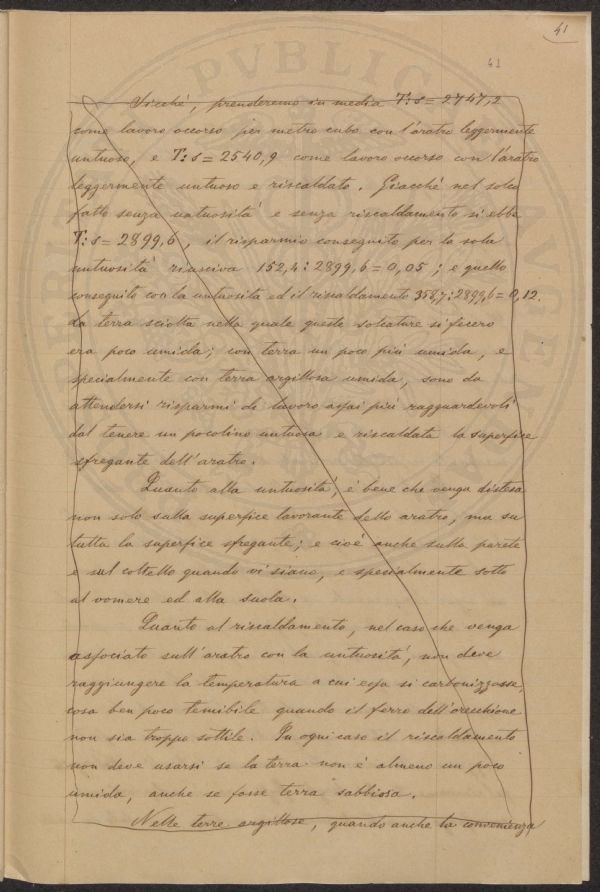 41
41
Sicché, prenderemo in media T:s = 2747,2
come lavoro occorso per metro cubo con l'aratro leggermente
untuoso, e T:s = 2540,9 come lavoro occorso con l'aratro
leggermente untuoso e riscaldato. Giacché nel solco
fatto senza untuosità e senza riscaldamento si ebbe
T:s = 2899,6, il risparmio conseguito per la sola
untuosità riusciva 152,4 : 2899,6 = 0,05; e quello
conseguito con la untuosità ed il riscaldamento 358,7 : 2899,6 = 0,12.
La terra sciolta nella quale queste solcature si fecero
era poco umida; con terra un poco più umida, e
specialmente con terra argillosa umida, sono da
attendersi risparmi di lavoro assai più ragguardevoli
dal tenere un pocolino untuosa e riscaldata la superfice
sfregante dell'aratro.
Quanto alla untuosità, è bene che venga distesa
non solo sulla superfice lavorante dello aratro, ma su
tutta la superfice sfregante; e cioè anche sulla parete
e sul coltello quando vi siano, e specialmente sotto
al vomere ed alla suola.
Quanto al riscaldamento, nel caso che venga
associato sull'aratro con la untuosità, non deve
raggiungere la temperatura a cui essa si carbonizzasse,
cosa ben poco temibile quando il ferro dell'orecchione
non sia troppo sottile. In ogni caso il riscaldamento
non deve usarsi se la terra non è almeno un poco
umida, anche se fosse terra sabbiosa.
Nelle terre argillose, quando anche la convenienza